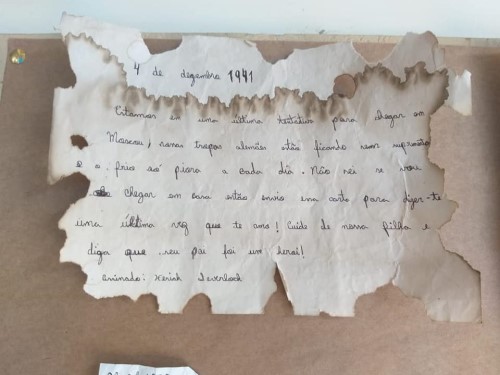 4 de dezembro 1941
Estamos em uma última tentativa para chegar em
Moscou, nossas tropas alemãs estão ficando sem suprimento
e o frio só piora a cada dia. Não sei se vou
chegar em casa então envio essa carta para dizer-te
uma última vez que te amo! Cuide de nossa filha e
diga que seu pai foi um herói!
Assinado: